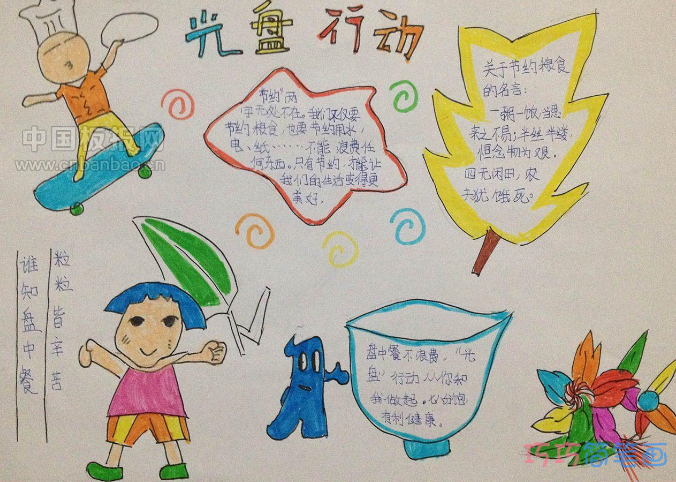 光盘行动
中国板报网
www.cnbanbao.cn
节约"两
字无处不在。我们不仅要
节约粮食，也要节约用水，
电、纸……不能浪费任
何东西。只有节约，才能让
我们的生活变得更
美好。
关于节约粮食
的名言：
一粥一饭，当思
来之不易；半丝半缕
恒念物力为艰。
四无闲田，农
夫犹饿死。
谁知盘中餐
粒粒皆辛苦
盘中餐不浪费，"光
盘"行动从你和
我做起。
有利健康。
巧巧简笔画